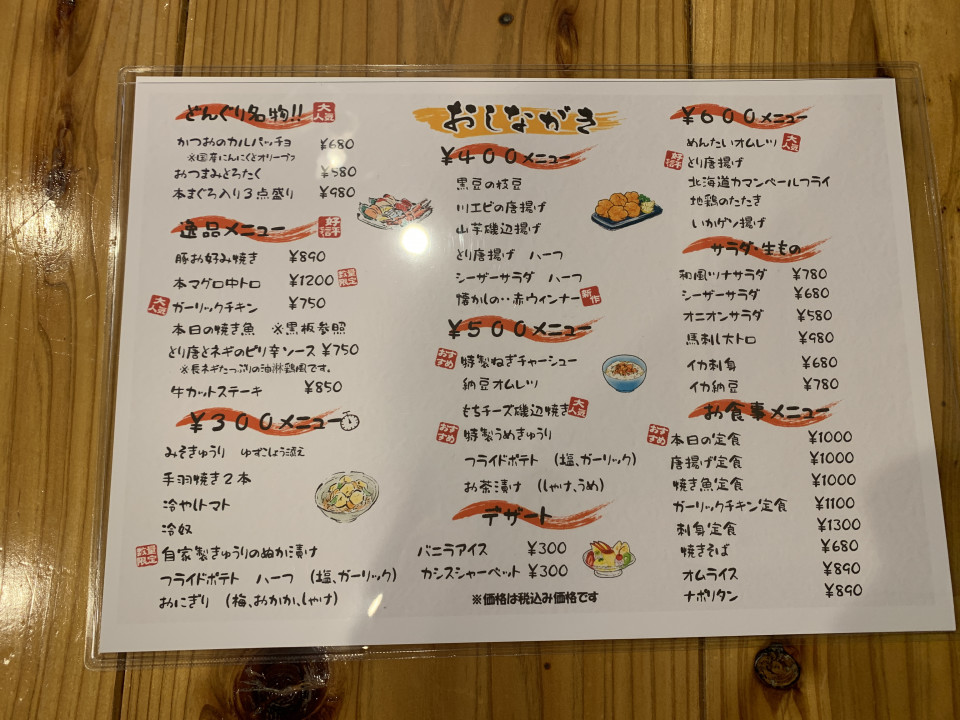 おしながき
どんぐり名物!! 大人気
かつおのカルパッチョ ¥680
※国産にんにくとオリーブ
おつまみどろたく ¥580
本まぐろ入り3点盛り ¥980
逸品メニュー 好評
豚お好み焼き ¥890
本マグロ中トロ ¥1200 数量限定
大人気 ガーリックチキン ¥750
本日の焼き魚 ※黒板参照
とり唐とネギのピリ辛ソース ¥750
※長ネギたっぷりの油淋鶏風です。
牛カットステーキ ¥850
¥300メニュー
みそきゅうり ゆずこしょう添え
手羽焼き2本
冷やしトマト
冷奴
数量限定 自家製きゅうりのぬか漬け
フライドポテト ハーフ (塩、ガーリック)
おにぎり (梅、おかか、しゃけ)
¥400メニュー
黒豆の枝豆
川エビの唐揚げ
山芋磯辺揚げ
とり唐揚げ ハーフ
シーザーサラダ ハーフ
懐かしの‥赤ウィンナー 新作
¥500メニュー
おすすめ 特製ねぎチャーシュー
納豆オムレツ
もちチーズ磯辺焼き 大人気
おすすめ 特製うめきゅうり
フライドポテト (塩、ガーリック)
お茶漬け (しゃけ、うめ)
デザート
バニラアイス ¥300
カシスシャーベット ¥300
※価格は税込み価格です
¥600メニュー
めんたいオムレツ 大人気
とり唐揚げ
北海道カマンベールフライ
地鶏のたたき
いかゲソ揚げ
サラダ・生もの
和風ツナサラダ ¥780
シーザーサラダ ¥680
オニオンサラダ ¥580
馬刺し大トロ ¥980
イカ刺身 ¥680
イカ納豆 ¥780
お食事メニュー
おすすめ 本日の定食 ¥1000
唐揚げ定食 ¥1000
焼き魚定食 ¥1000
ガーリックチキン定食 ¥1100
刺身定食 ¥1300
焼きそば ¥680
オムライス ¥890
ナポリタン ¥890